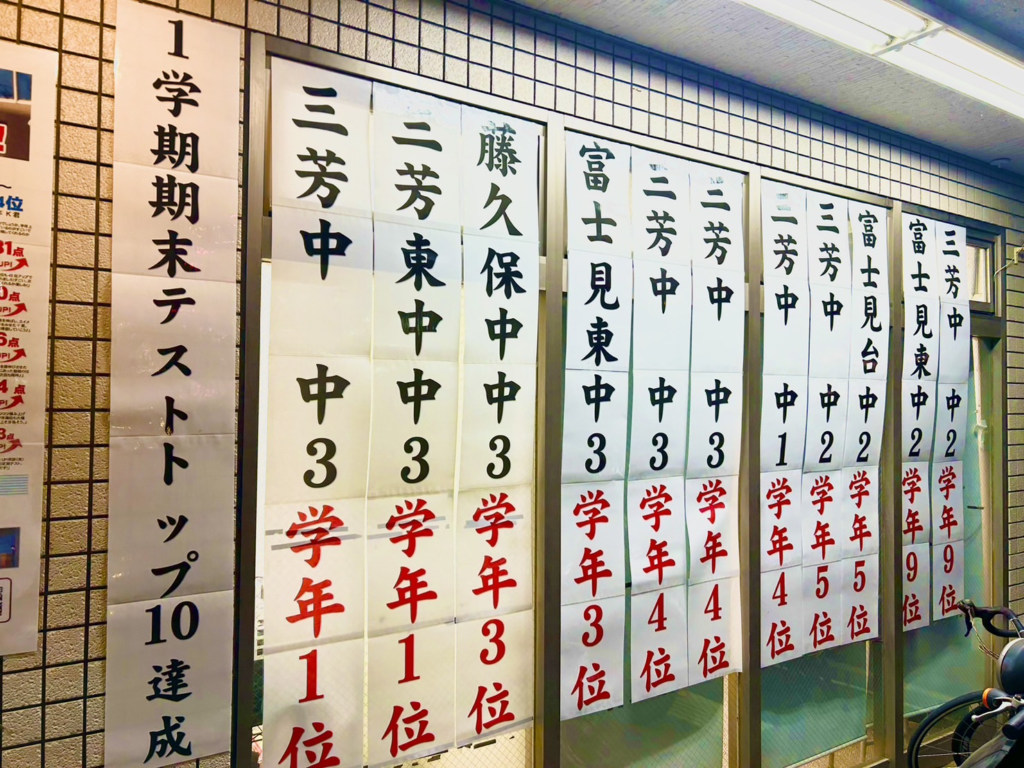 1学期期末テストトップ10達成
三芳中 中3 学年1位
三芳東中 中3 学年1位
藤久保中 中3 学年3位
富士見東 中3 学年3位
三芳中 中3 学年4位
三芳中 中3 学年4位
三芳中 中1 学年4位
三芳中 中2 学年5位
富士見台 中2 学年5位
富士見東 中2 学年9位
三芳中 中2 学年9位
4位